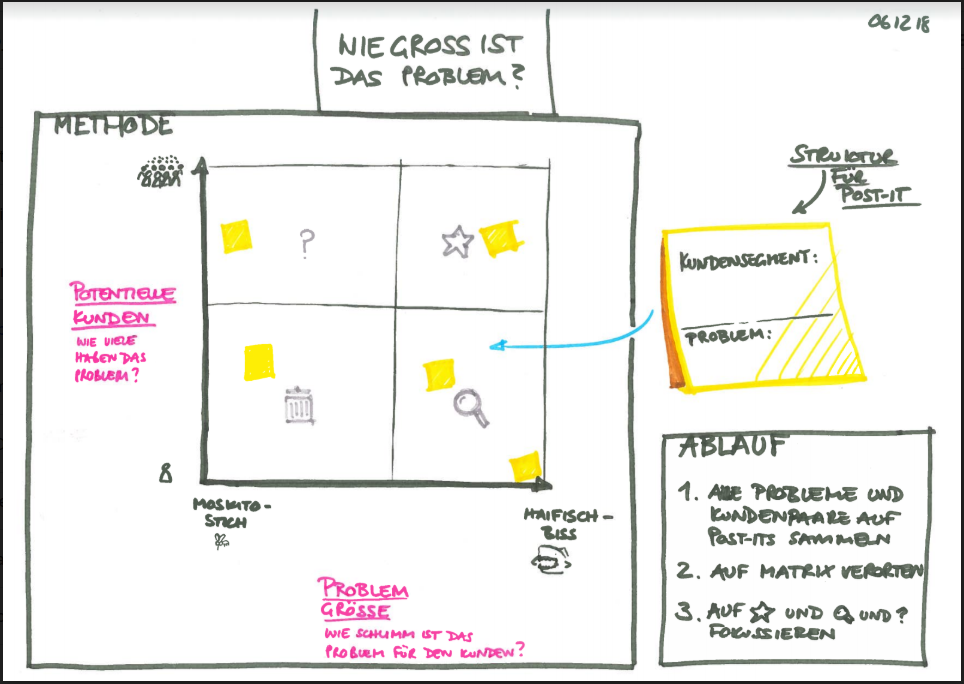 06 12 18
WIE GROSS IST
DAS PROBLEM?
METHODE
?
POTENTIELLE
KUNDEN
WIE VIELE
HABEN DAS
PROBLEM?
MOSKITO-
STICH
HAIFISCH-
BISS
PROBLEM
GRÖSSE
WIE SCHLIMM IST DAS
PROBLEM FÜR DEN KUNDEN?
STRUKTUR
FÜR
POST-IT
KUNDENSEGMENT:
PROBLEM:
ABLAUF
1. ALLE PROBLEME UND
KUNDENPAARE AUF
POST-ITS SAMMELN
2. AUF MATRIX VERORTEN
3. AUF ☆ UND 🔍 UND ?
FOKUSSIEREN